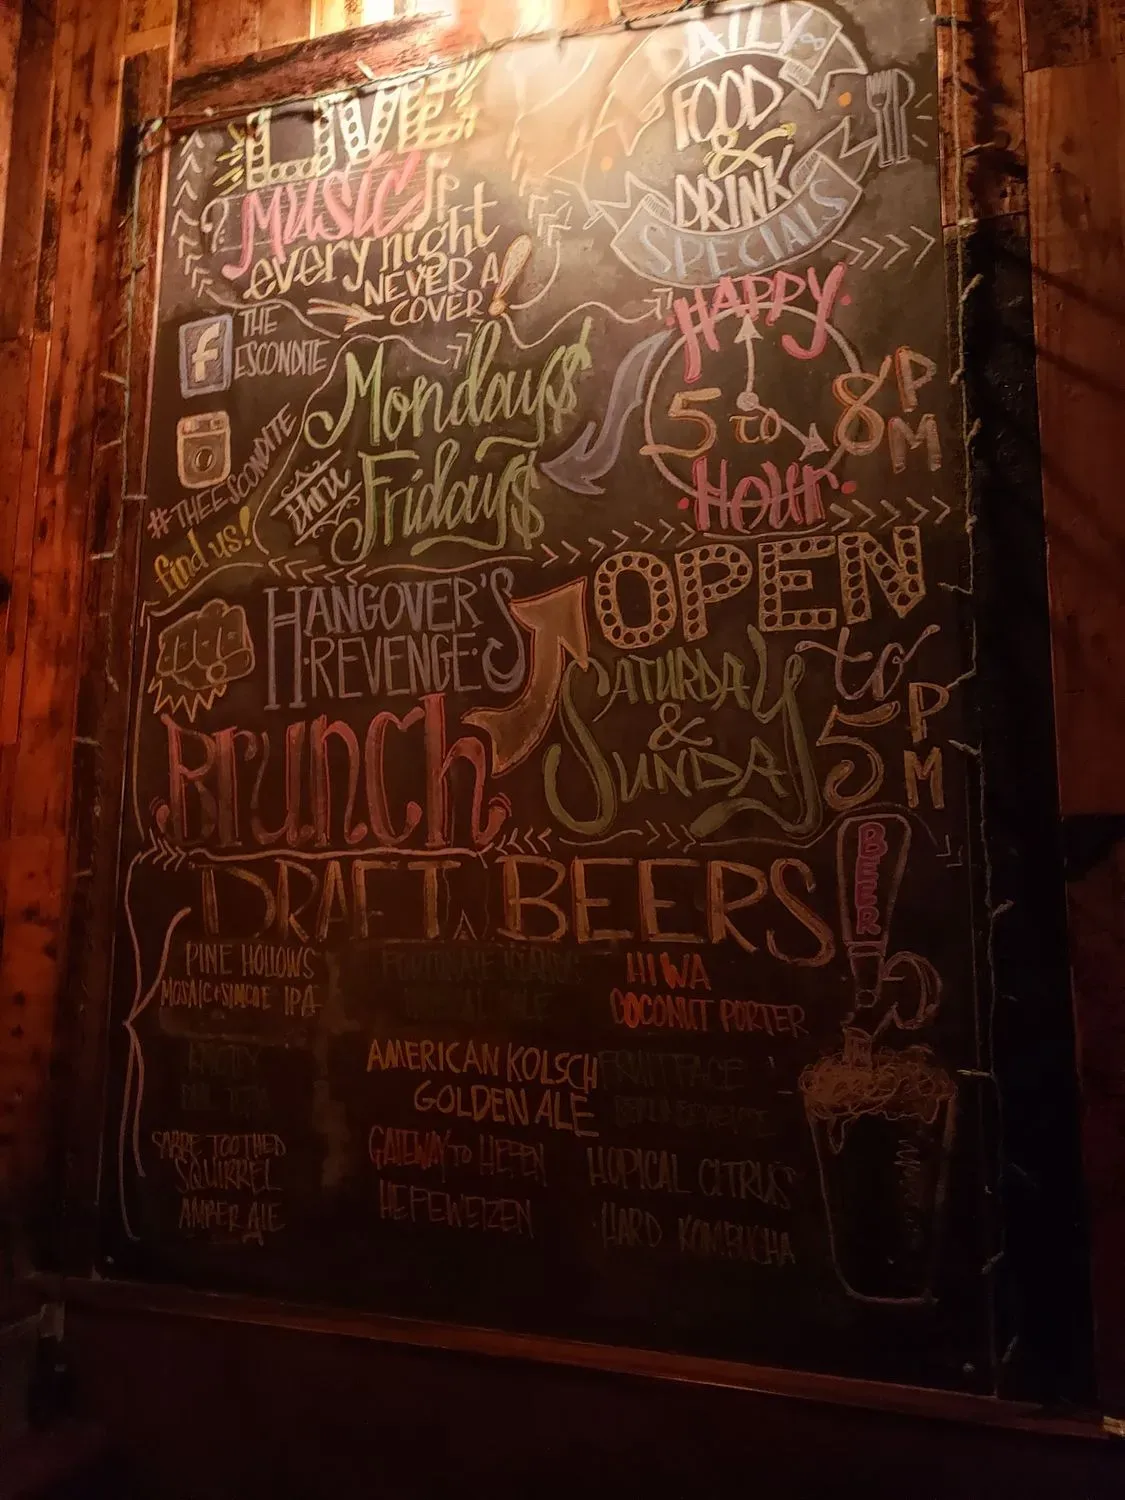 LIVE
MUSIC
every night
NEVER A
COVER!
DAILY
FOOD
&
DRINK
SPECIALS
THE
ESCONDITE
#THEESCONDITE
find us!
Monday$
thru
Friday$
HAPPY
5 to 8 PM
HOUR
HANGOVER'S
REVENGE
BRUNCH
OPEN
SATURDAY
&
SUNDAY
to
5 PM
DRAFT BEERS
BEER
PINE HOLLOWS
MOSAIC & SIMCOE IPA
SABRE TOOTHED
SQUIRREL
AMBER ALE
AMERICAN KOLSCH
GOLDEN ALE
GATEWAY TO HEFEN
HEFEWEIZEN
HIWA
COCONUT PORTER
FRUITFACE
HOPICAL CITRUS
HARD KOMBUCHA